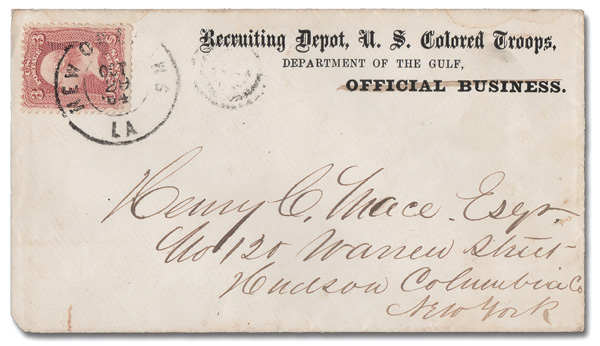 Recruiting Depot, U. S. Colored Troops,
DEPARTMENT OF THE GULF,
OFFICIAL BUSINESS.
NEW O NS
OCT
29
64
LA
3 3
Henry C. Mace. Esqr.
No 120 Warren Street
Hudson Columbia Co
New York